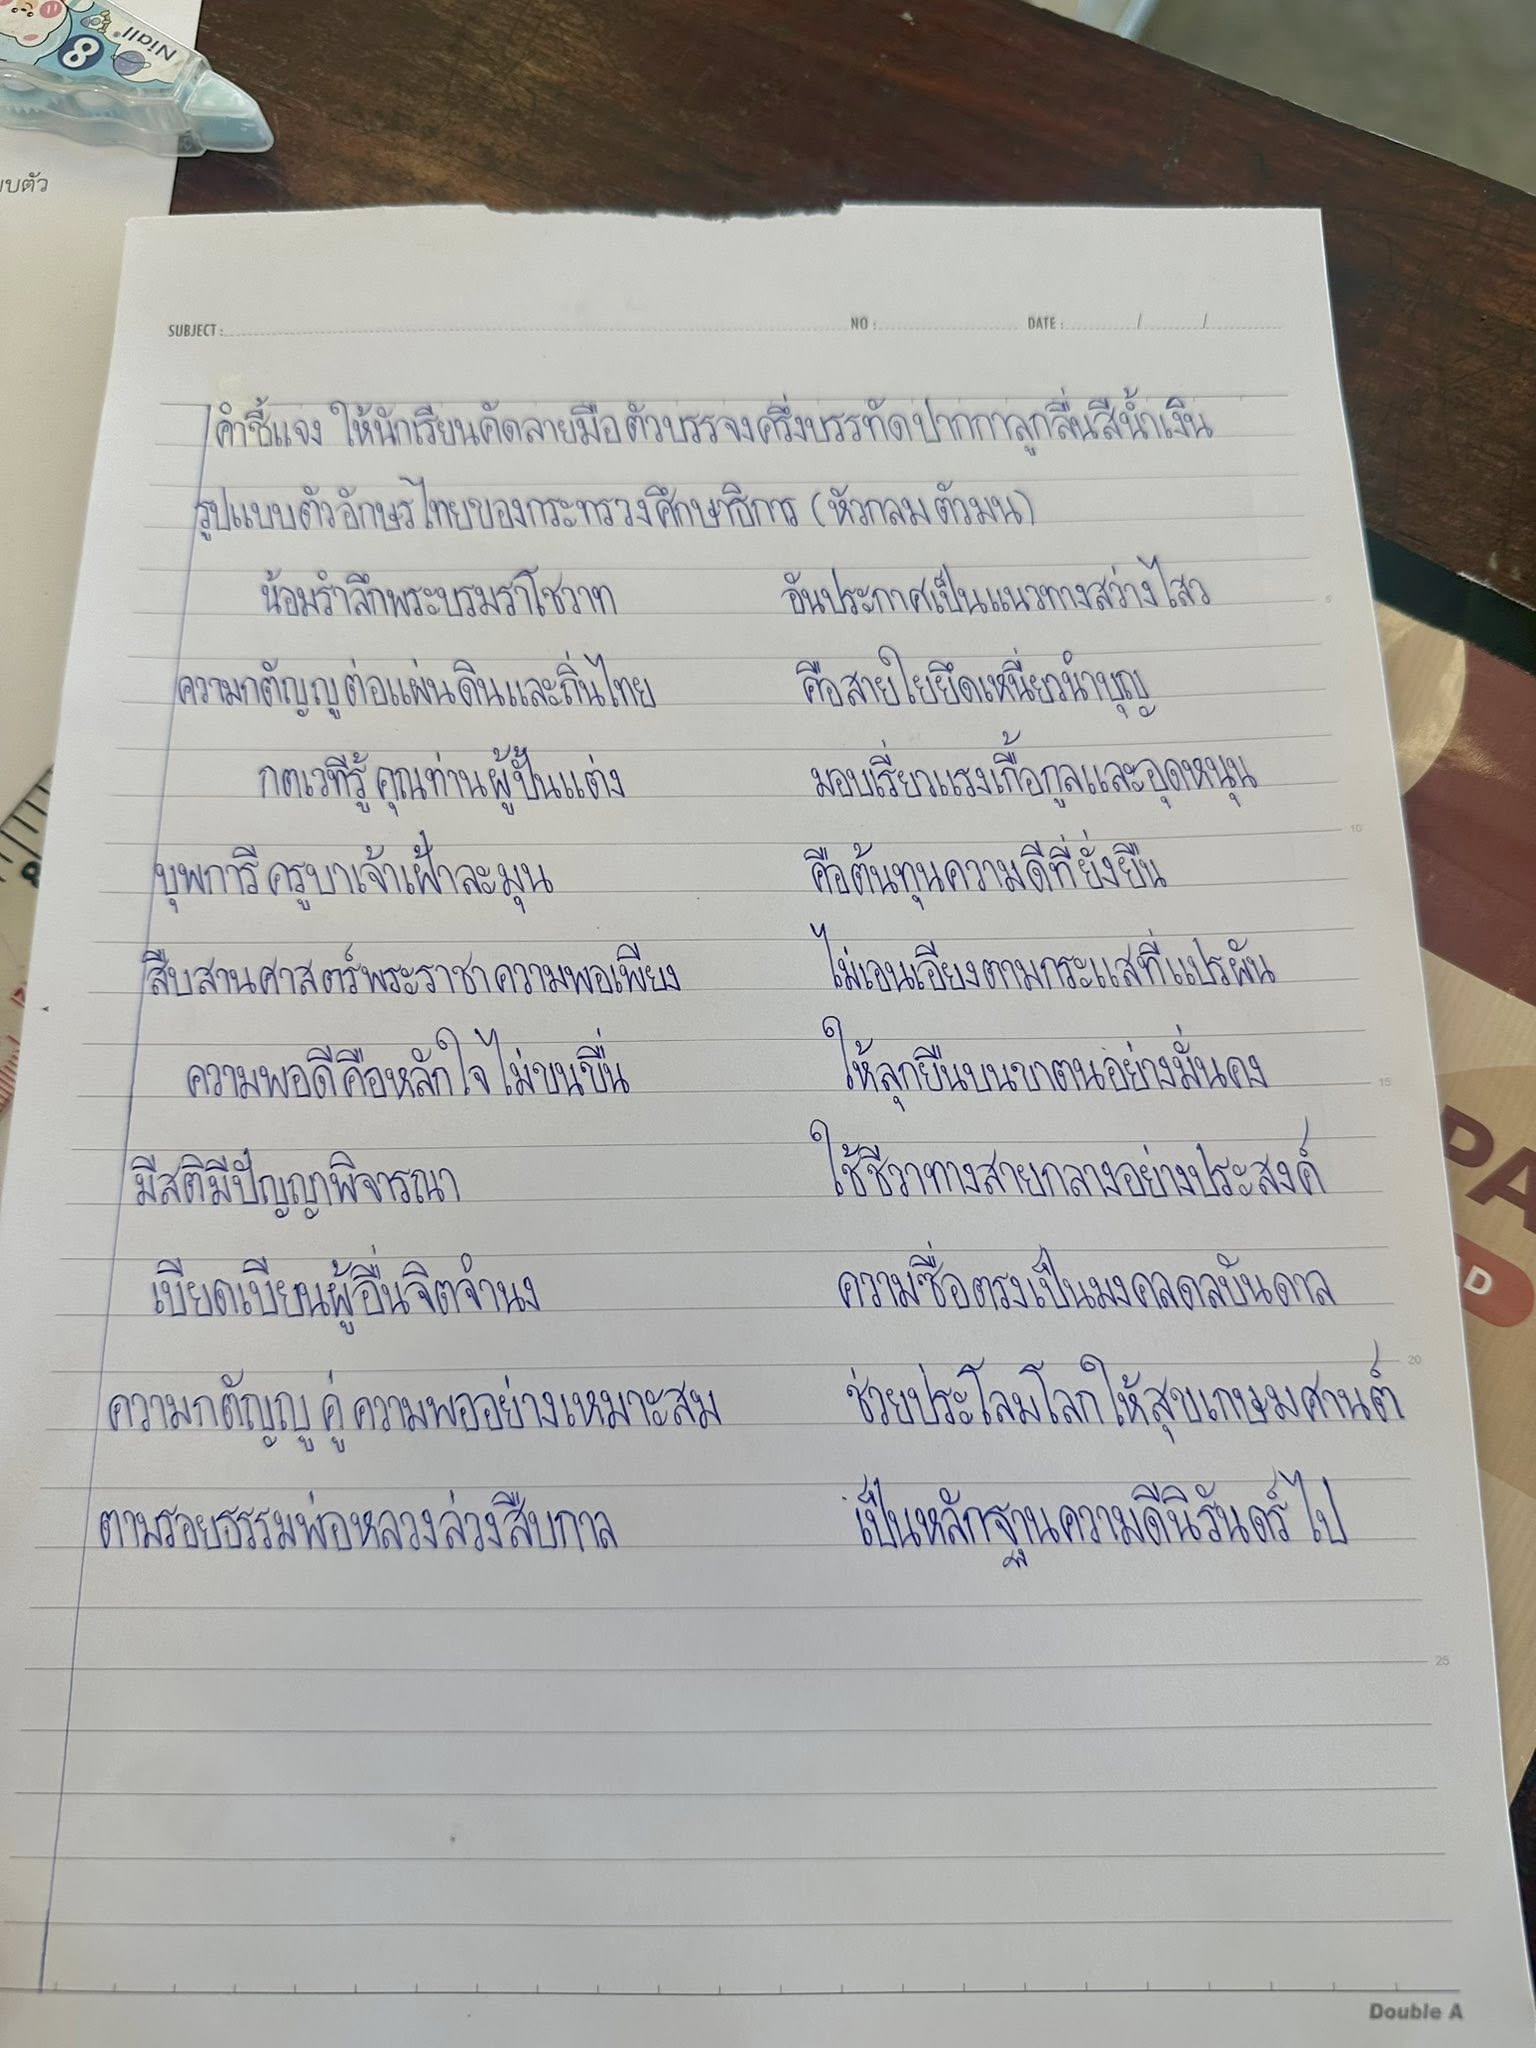 Niall
8
บบตัว
SUBJECT : NO : DATE : / /
คำชี้แจง ให้นักเรียนคัดลายมือตัวบรรจงครึ่งบรรทัดปากกาลูกลื่นสีน้ำเงิน
รูปแบบตัวอักษรไทยของกระทรวงศึกษาธิการ (หัวกลมตัวมน)
น้อมรำลึกพระบรมราโชวาท อันประกาศเป็นแนวทางสว่างไสว
ความกตัญญูต่อแผ่นดินและถิ่นไทย คือสายใยยึดเหนี่ยวนำบุญ
กตเวทีรู้คุณท่านผู้ปั้นแต่ง มอบเรี่ยวแรงเกื้อกูลและอุดหนุน
บุพการีครูบาเจ้าเฝ้าละมุน คือต้นทุนความดีที่ยั่งยืน
สืบสานศาสตร์พระราชาความพอเพียง ไม่เอนเอียงตามกระแสที่แปรผัน
ความพอดีคือหลักใจไม่ขนขื่น ให้ลุกยืนบนขาตนอย่างมั่นคง
มีสติมีปัญญาพิจารณา ใช้ชีวาทางสายกลางอย่างประสงค์
เบียดเบียนผู้อื่นจิตจำนง ความซื่อตรงเป็นมงคลดลบันดาล
ความกตัญญูคู่ความพออย่างเหมาะสม ช่วยประโลมโลกให้สุขเกษมศานต์
ตามรอยธรรมพ่อหลวงล่วงสืบกาล เป็นหลักฐานความดีนิรันดร์ไป
5
10
15
20
25
PA
D
Double A